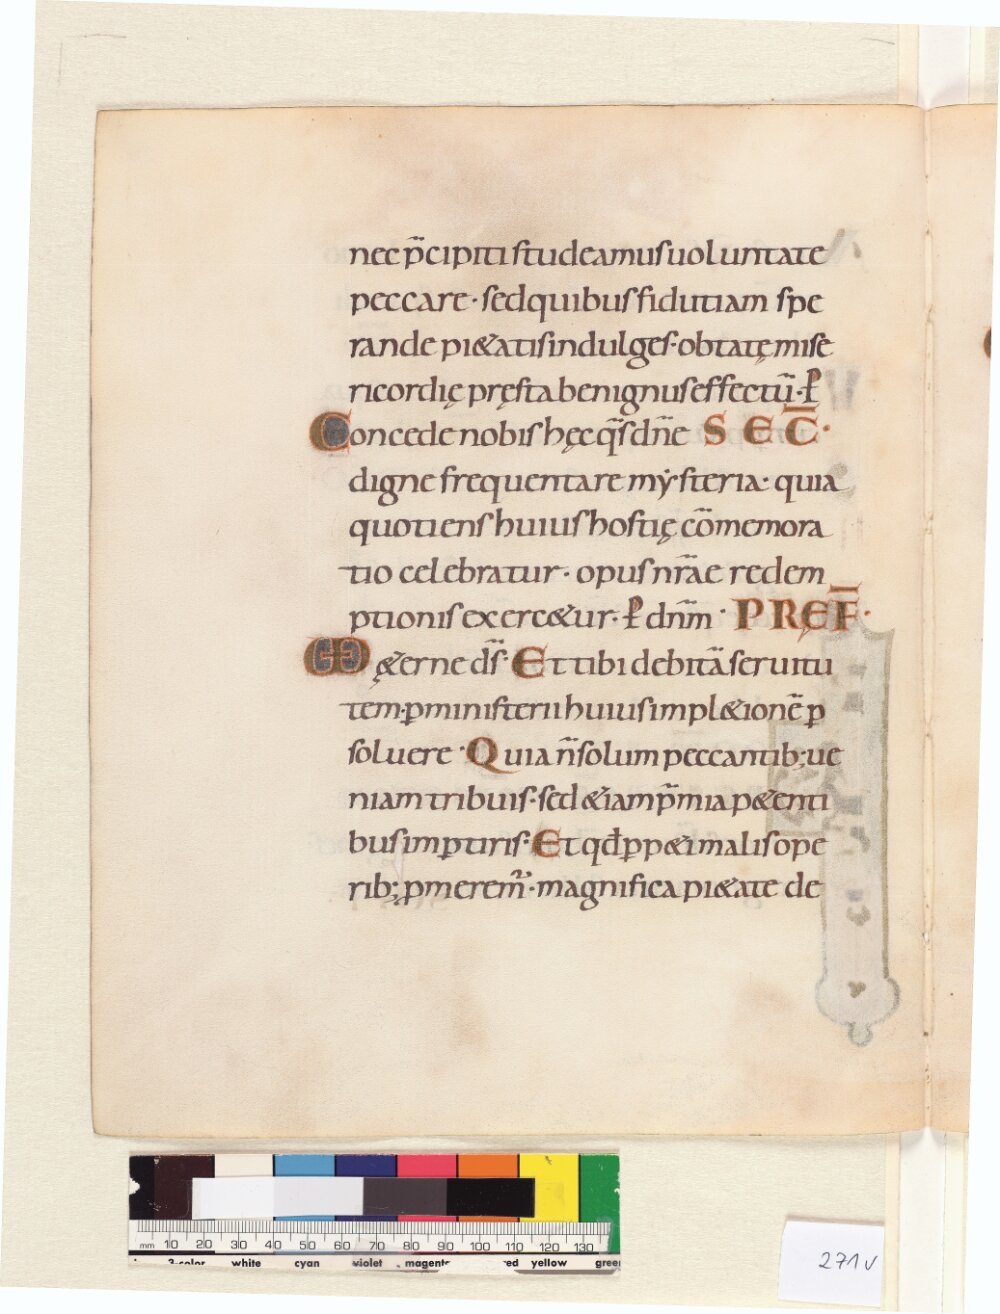 nec p̄cipiti studeamus uoluntate
peccare · sed quibus fidutiam spe
randę pi&atis indulges · obtatę mise
ricordię pręsta benignus effectū · ꝑ
Concede nobis hęc q̄s dn̄e SECR̄ ·
digne frequentare mẏsteria · quia
quotiens huius hostię cōmemora
tio celebratur · opus nr̄ae redem
ptionis exerc&ur · ꝑ dn̄m · PREF̄ ·
Ęterne ds̄ · Et tibi debitā seruitu
tem · ꝑ ministerii huius impl&ionē ꝑ
soluere · Quia n̄ solum peccantib; ue
niam tribuis · sed &iam p̄mia p&enti
bus impꝑtiris · Et qđ ꝑp&i malis ope
rib; ꝓmerem̃ · magnifica pi&ate de
271v
mm 10 20 30 40 50 60 70 80 90 100 110 120 130
3-color white cyan violet magenta red yellow green